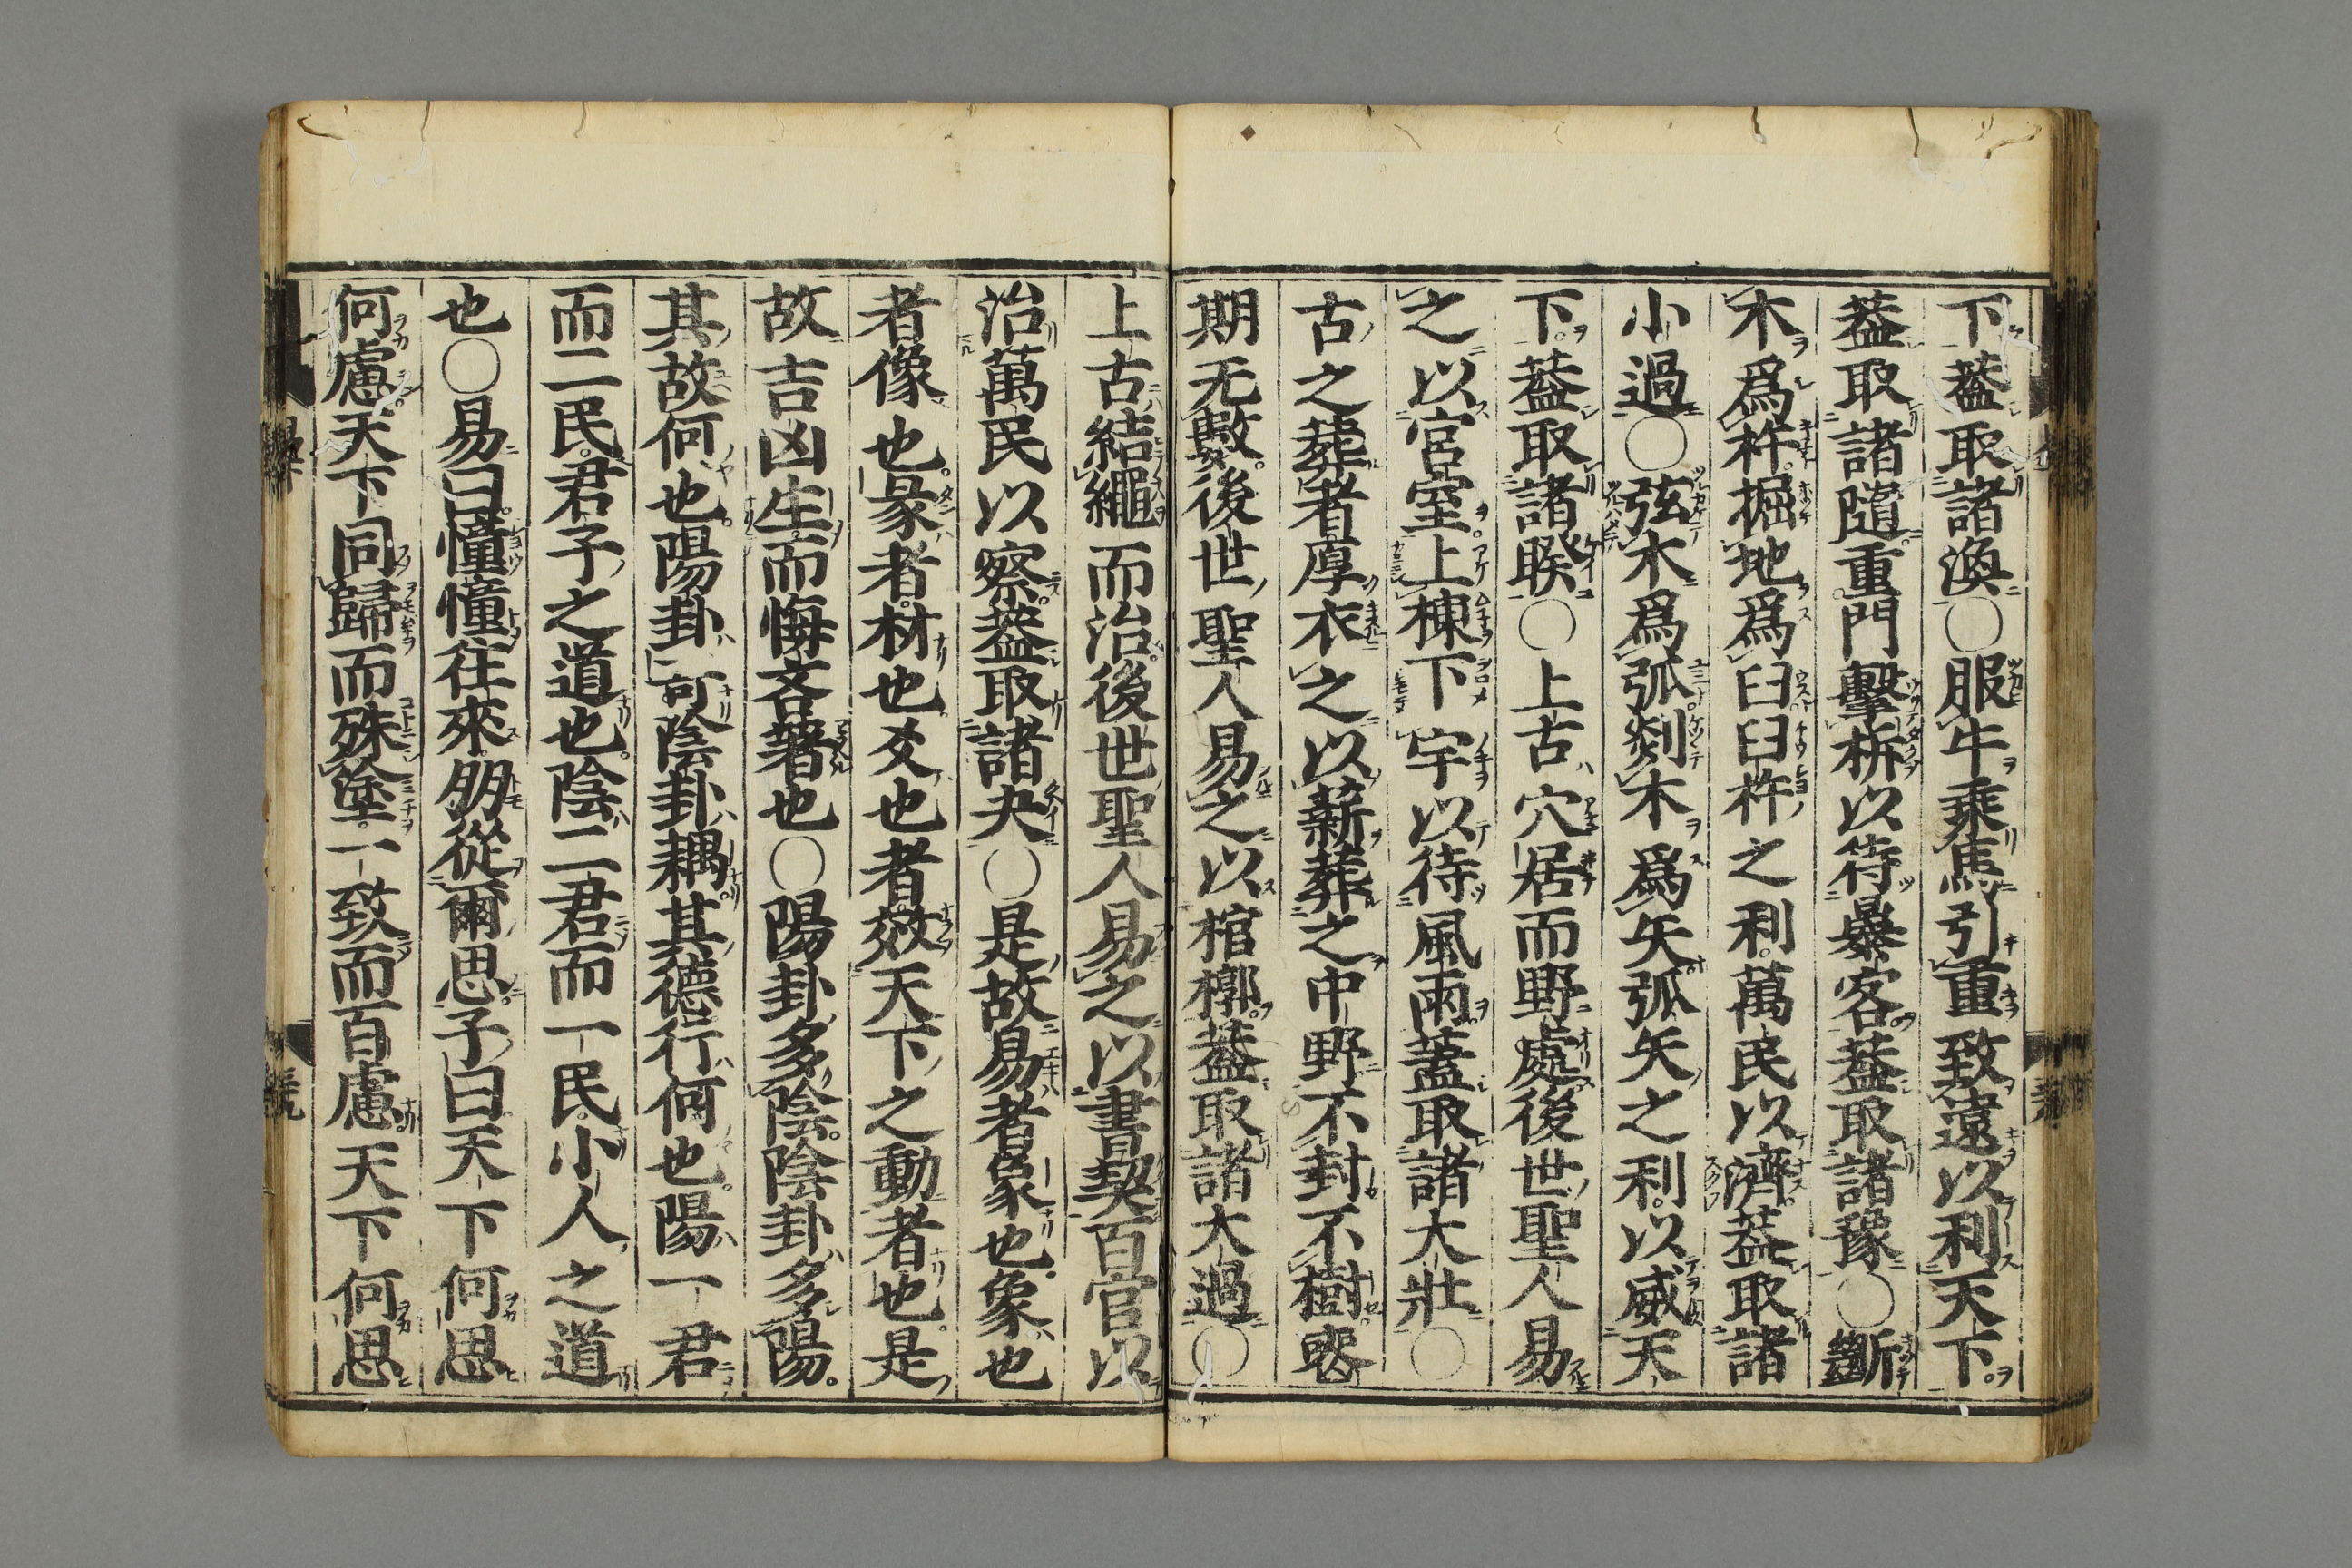 下蓋取諸渙○服牛乘馬引重致遠以利天下
蓋取諸隨重門擊柝以待暴客蓋取諸豫○斷
木爲杵掘地爲臼臼杵之利萬民以濟蓋取諸
小過○弦木爲弧剡木爲矢弧矢之利以威天
下蓋取諸睽○上古穴居而野處後世聖人易
之以宮室上棟下宇以待風雨蓋取諸大壯○
古之葬者厚衣之以薪葬之中野不封不樹喪
期无數後世聖人易之以棺槨蓋取諸大過○
上古結繩而治後世聖人易之以書契百官以
治萬民以察蓋取諸夬○是故易者象也象也
者像也彖者材也爻也者效天下之動者也是
故吉凶生而悔吝著也○陽卦多陰陰卦多陽
其故何也陽卦奇陰卦耦其德行何也陽一君
而二民君子之道也陰二君而一民小人之道
也○易曰憧憧往來朋從爾思子曰天下何思
何慮天下同歸而殊塗一致而百慮天下何思